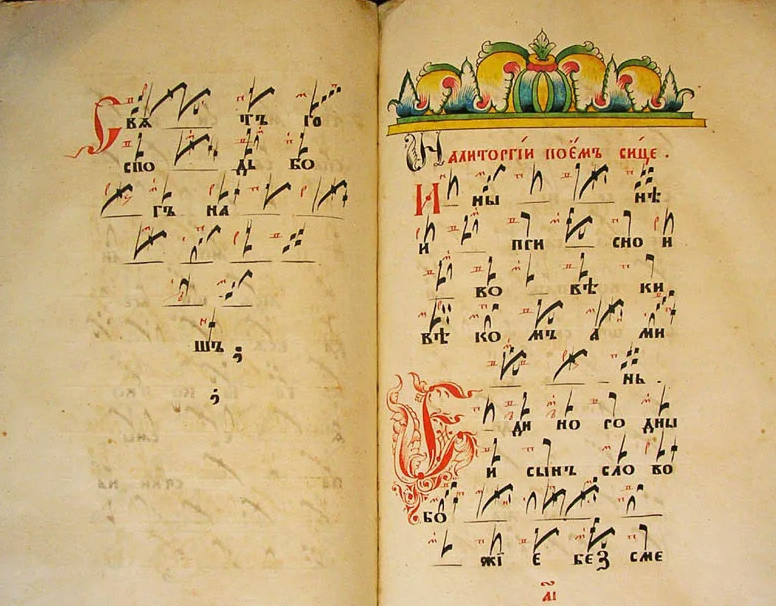 Свѧ тъ го
спо дь бо
гъ на
шъ ;
;
На литоргіи поемъ сице .
И ны нѣ
и пги сно и
во вѣ ки
вѣ ко мъ а ми
нь .
Е ди но го дны
и сынъ сло во
бо
жі е без сме
аі